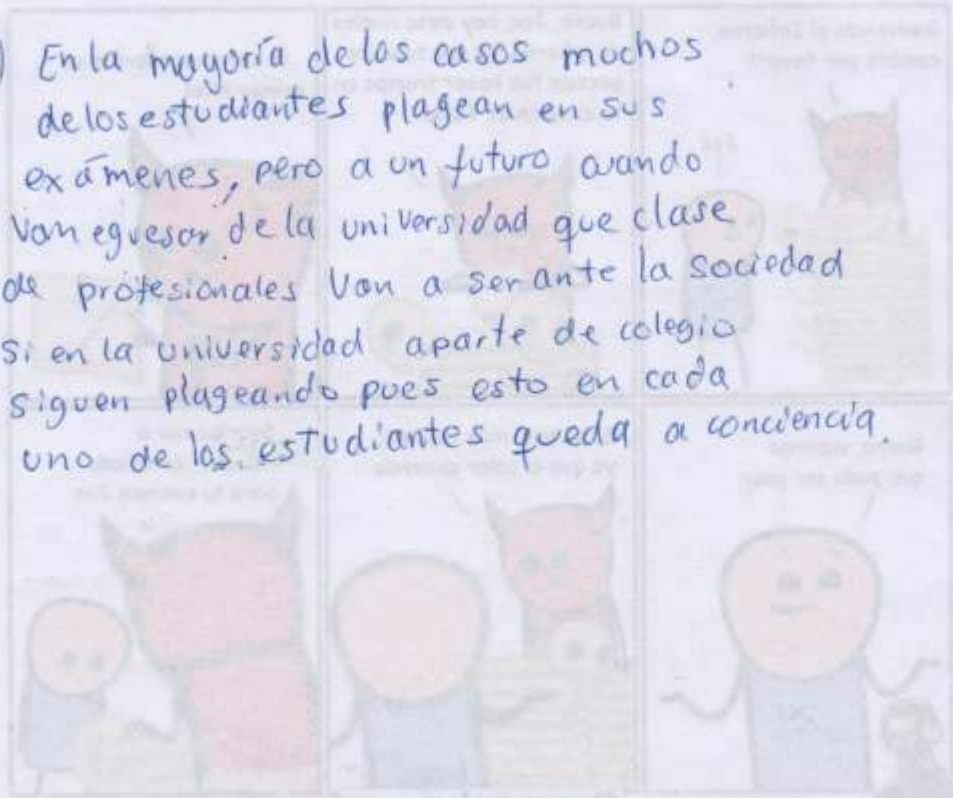 ) En la mayoría de los casos muchos
de los estudiantes plagean en sus
exámenes, pero a un futuro cuando
van egresar de la universidad que clase
de profesionales van a ser ante la sociedad
si en la universidad aparte de colegio
siguen plageando pues esto en cada
uno de los estudiantes queda a conciencia.